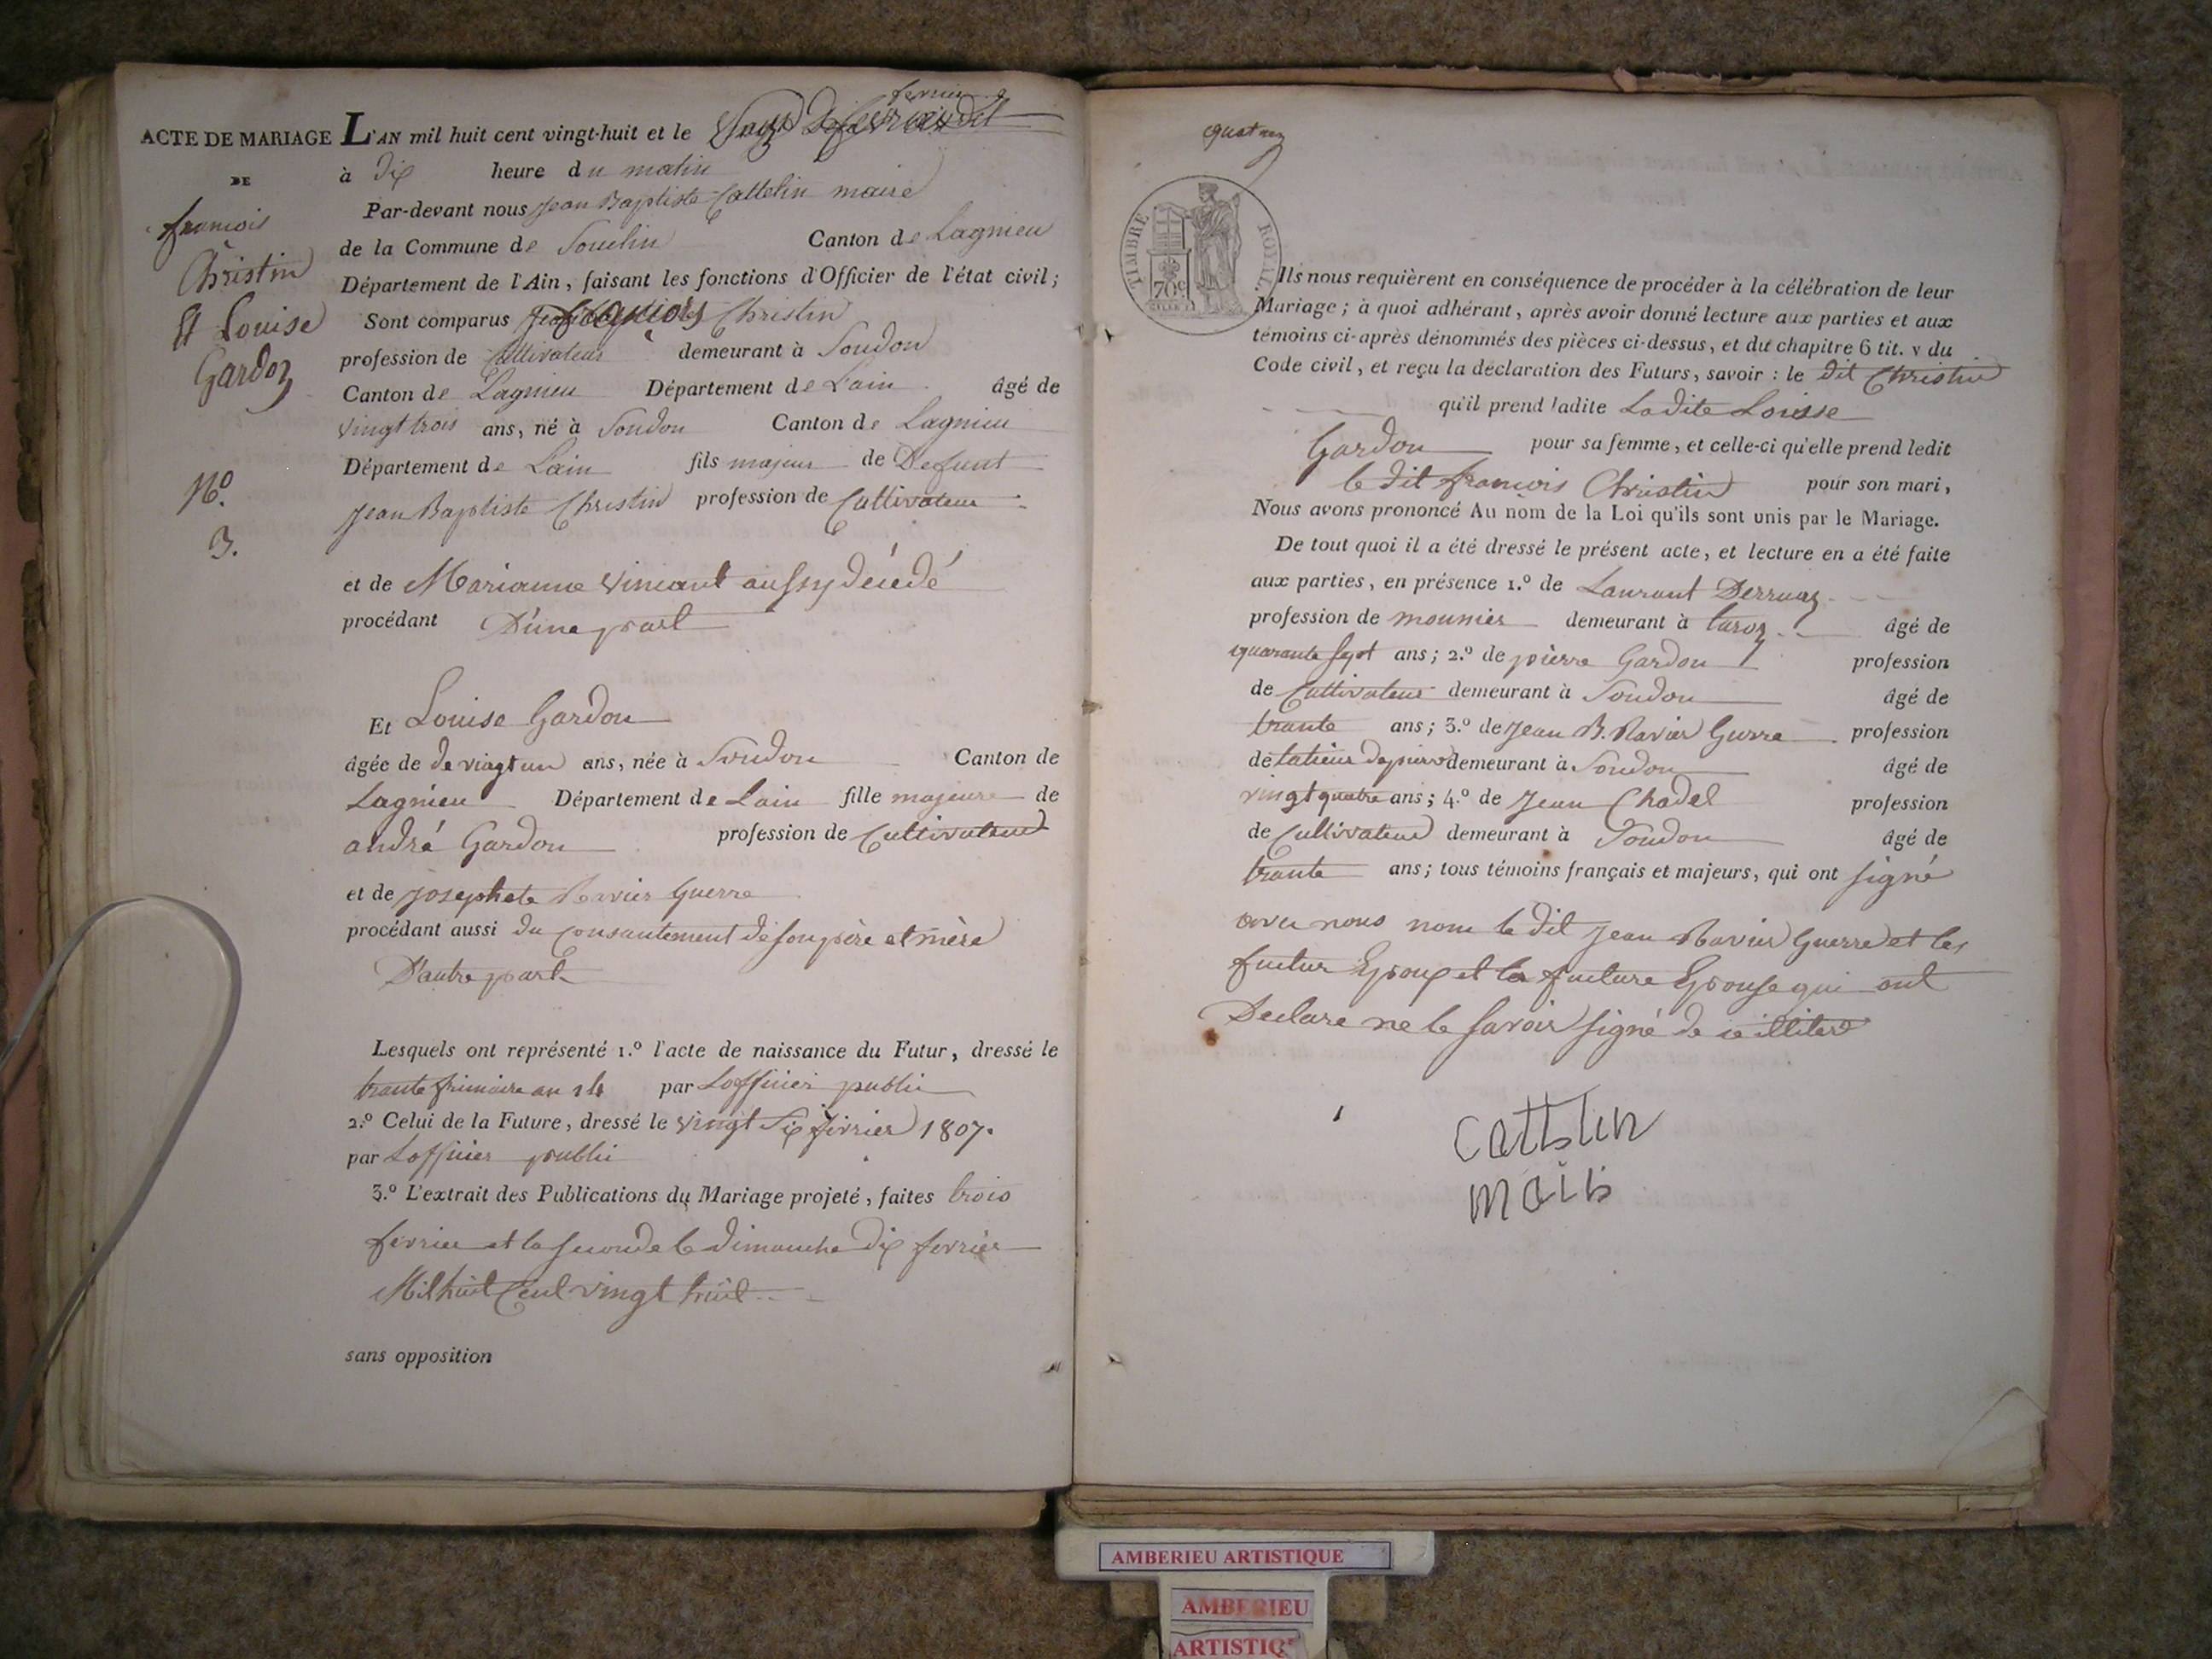 ACTE DE MARIAGE
DE
francois
Christin
Et Louise
Gardon
N.o
3.
L'AN mil huit cent vingt-huit et le
fevrier
à dix heure du matin
Par-devant nous jean Baptiste Cattelin maire
de la Commune de Souclin Canton de Lagnieu
Département de l'Ain, faisant les fonctions d'Officier de l'état civil;
Sont comparus francois Christin
profession de Cultivateur demeurant à Soudon
Canton de Lagnieu Département de Lain âgé de
vingt trois ans, né à Soudon Canton de Lagnieu
Département de Lain fils majeur de Defunt
jean Baptiste Christin profession de Cultivateur
et de Marianne Vincent aussy décédé
procédant D'une part
Et Louise Gardon
âgée de de viagt un ans, née à Soudon Canton de
Lagnieu Département de Lain fille majeure de
andré Gardon profession de Cultivateur
et de josephete Ravier Guerre
procédant aussi du consantement de son père et mère
D'autre part
Lesquels ont représenté 1.º l'acte de naissance du Futur, dressé le
trante frimaire an 14 par Lofficier public
2.º Celui de la Future, dressé le vingt Six fevrier 1807.
par Lofficier public
3.º L'extrait des Publications du Mariage projeté, faites trois
fevrier et la seconde le dimanche dix fevrier
Mil huit Cent vingt huit
sans opposition
TIMBRE ROYAL
70c
Ils nous requièrent en conséquence de procéder à la célébration de leur
Mariage; à quoi adhérant, après avoir donné lecture aux parties et aux
témoins ci-après dénommés des pièces ci-dessus, et du chapitre 6 tit. v du
Code civil, et reçu la déclaration des Futurs, savoir : le dit Christin
qu'il prend ladite Ladite Loisse
Gardon pour sa femme, et celle-ci qu'elle prend ledit
le dit francois Christin pour son mari,
Nous avons prononcé Au nom de la Loi qu'ils sont unis par le Mariage.
De tout quoi il a été dressé le présent acte, et lecture en a été faite
aux parties, en présence 1.º de Laurant Derruaz
profession de mounier demeurant à taroz âgé de
quarante sept ans; 2.º de pierre Gardon profession
de Cultivateur demeurant à Soudon âgé de
trante ans; 3.º de jean B. Ravier Gurre profession
de tatieur de pierre demeurant à Soudon âgé de
vingt quatre ans; 4.º de jean Chadel profession
de Cultivateur demeurant à Soudon âgé de
trante ans; tous témoins français et majeurs, qui ont signé
avec nous nom le dit jean Ravier Guerre et les
fuctur Epoux et la fucture Epouse qui ont
Declare ne le savoir signé de ce
cattelin
maire
AMBERIEU ARTISTIQUE
AMBERIEU
ARTISTIQ